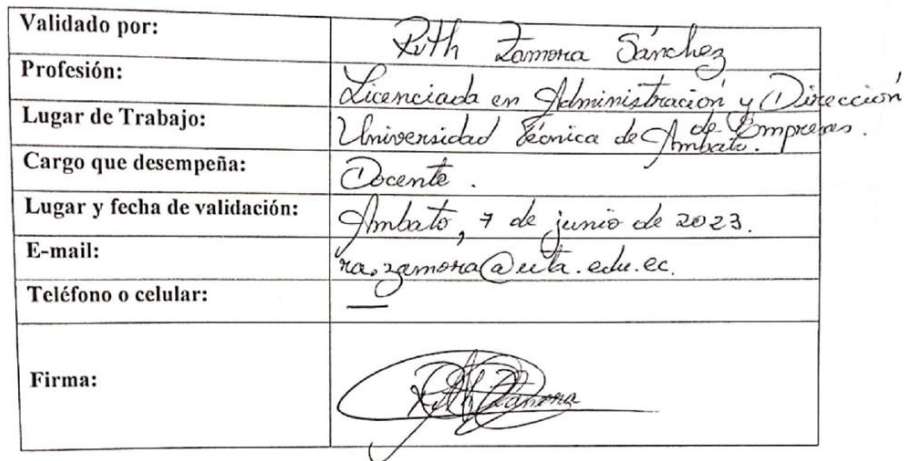 Validado por: Ruth Zamora Sánchez
Profesión: Licenciada en Administración y Dirección de Empresas.
Lugar de Trabajo: Universidad Técnica de Ambato.
Cargo que desempeña: Docente.
Lugar y fecha de validación: Ambato, 7 de junio de 2023.
E-mail: ra.zamora@uta.edu.ec.
Teléfono o celular: —
Firma: Ruth Zamora